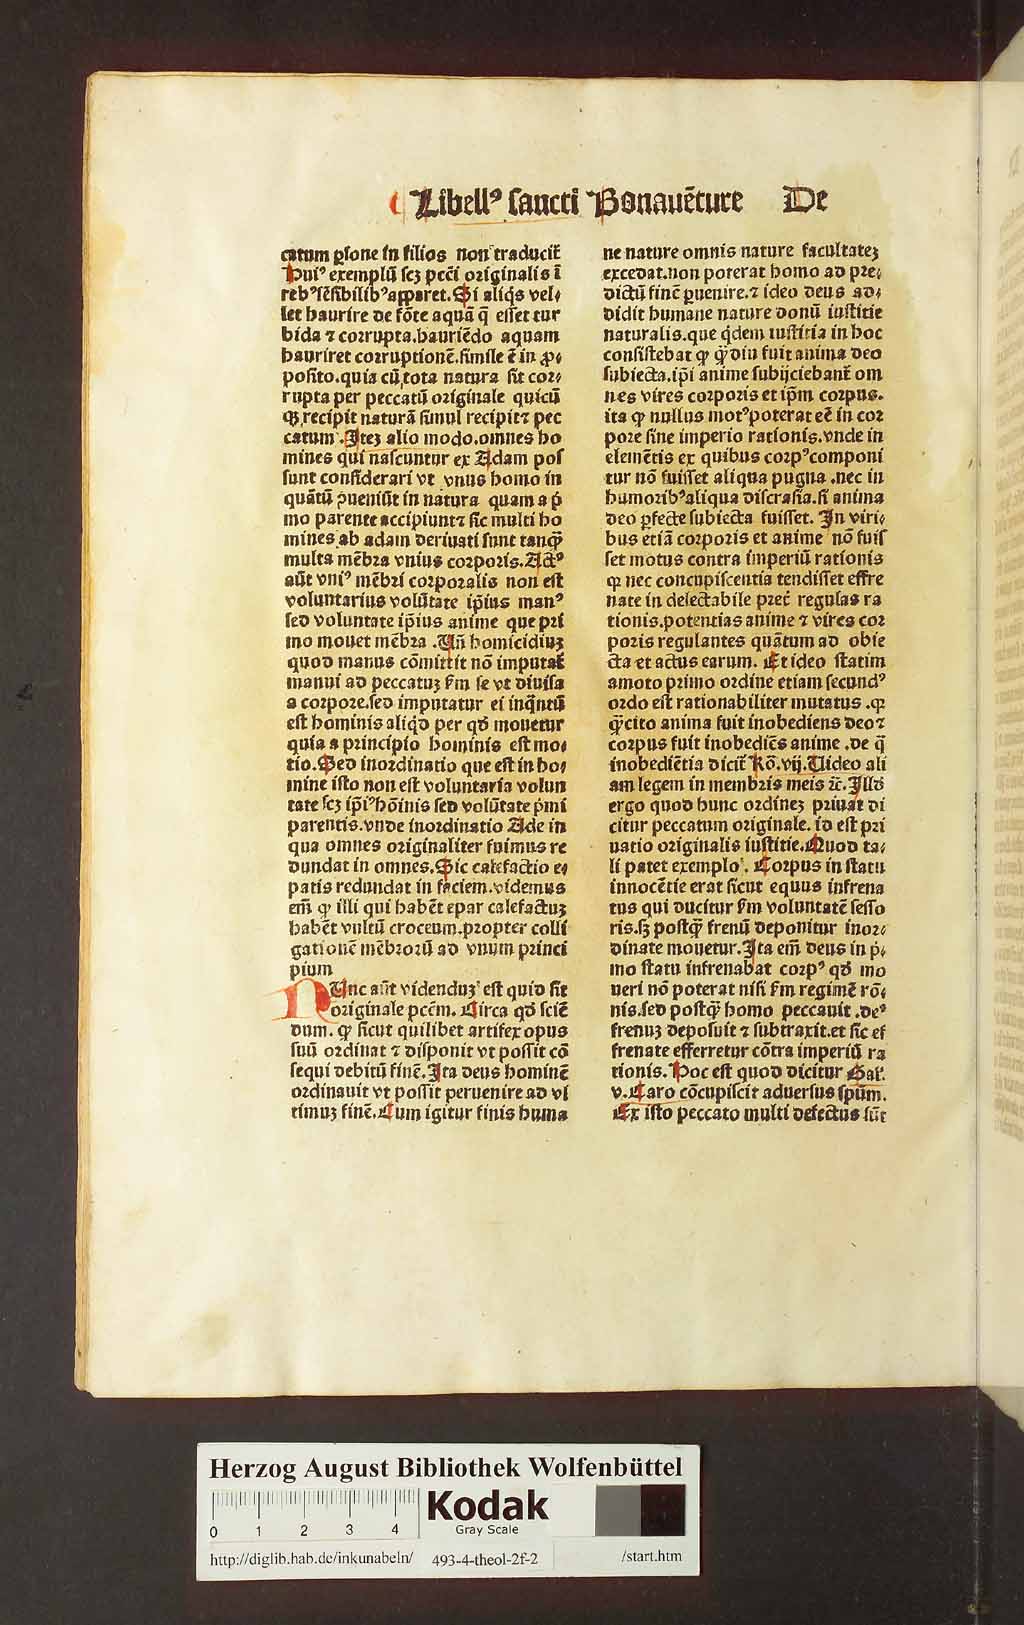 Libellꝰ sancti Bonauẽture De
catum ꝑsone in filios non traducit̃
Huiꝰ exemplũ scꝫ pctĩ originalis ĩ
rebꝰ sẽsibilibꝰ apparet. Si aliq̃s vel⸗
let haurire de fõte aquã q̃ esset tur
bida ⁊ corrupta. hauriẽdo aquam
hauriret corruptionẽ. simile ẽ in ꝓ⸗
posito. quia cũ tota natura sit cor⸗
rupta per peccatũ originale quicũ
qꝫ recipit naturã simul recipit ⁊ pec
catum. Itez alio modo. omnes ho
mines qui nascuntur ex Adam pos
sunt considerari vt vnus homo in
quãtũ ꝯueniũt in natura quam a p̃
mo parente accipiunt ⁊ sic multi ho
mines ab adam deriuati sunt tanq̃
multa mẽbra vnius corporis. Actꝰ
aũt vniꝰ mẽbri corporalis non est
voluntarius volũtate ip̃ius manꝰ
sed voluntate ip̃ius anime que pri
mo mouet mẽbra. Vñ homicidiuz
quod manus cõmittit nõ imputat̃
manui ad peccatuz ẜm se vt diuisa
a corpore. sed imputatur ei inq̃ntũ
est hominis aliq̃d per qd̃ mouetur
quia a principio hominis est mo⸗
tio. Sed inordinatio que est in ho⸗
mine isto non est voluntaria volun
tate scꝫ ip̃iꝰ hõinis sed volũtate p̃mi
parentis. vnde inordinatio Ade in
qua omnes originaliter fuimus re
dundat in omnes. Sic calefactio e⸗
patis redundat in faciem. videmus
em̃ ꝙ illi qui habẽt epar calefactuz
habẽt vultũ croceum. propter colli
gationẽ mẽbrorũ ad vnum princi
pium
NUnc aũt videnduz est quid sit
originale pctm̃. Circa qd̃ sciẽ
dum. ꝙ sicut quilibet artifex opus
suũ ordinat ⁊ disponit vt possit cõ
sequi debitũ finẽ. Ita deus hominẽ
ordinauit vt possit peruenire ad vl
timuz finẽ. Cum igitur finis huma
ne nature omnis nature facultatez
excedat. non poterat homo ad pre⸗
dictũ finẽ ꝑuenire. ⁊ ideo deus ad⸗
didit humane nature donũ iustitie
naturalis. que q̃dem iustitia in hoc
consistebat ꝙ q̃diu fuit anima deo
subiecta. ip̃i anime subijciebant̃ om
nes vires corporis et ip̃m corpus.
ita ꝙ nullus motꝰ poterat eẽ in cor
pore sine imperio rationis. vnde in
elemẽtis ex quibus corpꝰ componi
tur nõ fuisset aliqua pugna. nec in
humoribꝰ aliqua discrasia. si anima
deo ꝑfecte subiecta fuisset. In viri⸗
bus etiã corporis et anime nõ fuis
set motus contra imperiũ rationis
ꝙ nec concupiscentia tendisset effre
nate in delectabile pret̃ regulas ra
tionis. potentias anime ⁊ vires cor
poris regulantes quãtum ad obie
cta et actus earum. Et ideo statim
amoto primo ordine etiam secundꝰ
ordo est rationabiliter mutatus. ꝙ
q̃cito anima fuit inobediens deo ⁊
corpus fuit inobediẽs anime. de q̃
inobediẽtia dicit̃ Rõ. vij. Uideo ali
am legem in membris meis ⁊c̃. Illd̃
ergo quod hunc ordinez priuat di
citur peccatum originale. id est pri
uatio originalis iustitie. Quod ta⸗
li patet exemplo. Corpus in statu
innocẽtie erat sicut equus infrena
tus qui ducitur ẜm voluntatẽ sesso
ris. sꝫ postq̃ frenũ deponitur inor⸗
dinate mouetur. Ita em̃ deus in p̃⸗
mo statu infrenabat corpꝰ qd̃ mo
ueri nõ poterat nisi ẜm regimẽ rõ⸗
nis. sed postq̃ homo peccauit. deꝰ
frenuz deposuit ⁊ subtraxit. et sic ef
frenate efferretur cõtra imperiũ ra
tionis. Hoc est quod dicitur Gal̃.
v. Caro cõcupiscit aduersus spm̃.
Ex isto peccato multi defectus sũt
Herzog August Bibliothek Wolfenbüttel
0 1 2 3 4
Kodak
Gray Scale
http://diglib.hab.de/inkunabeln/ 493-4-theol-2f-2 /start.htm